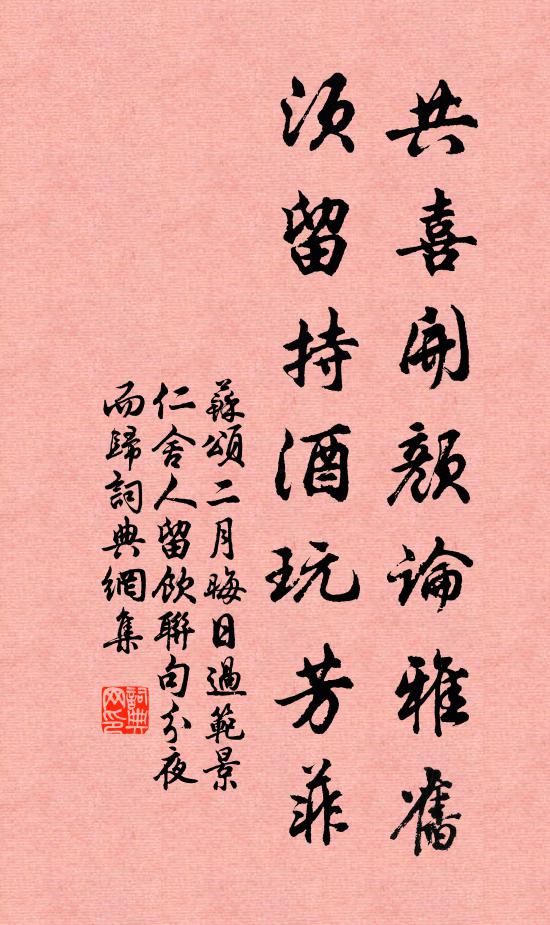 共喜開顏論雅舊
須留持酒玩芳菲
蘇頌二月晦日過範景
仁舍人留飲聯句分夜
而歸詞典網集
詞典
网印